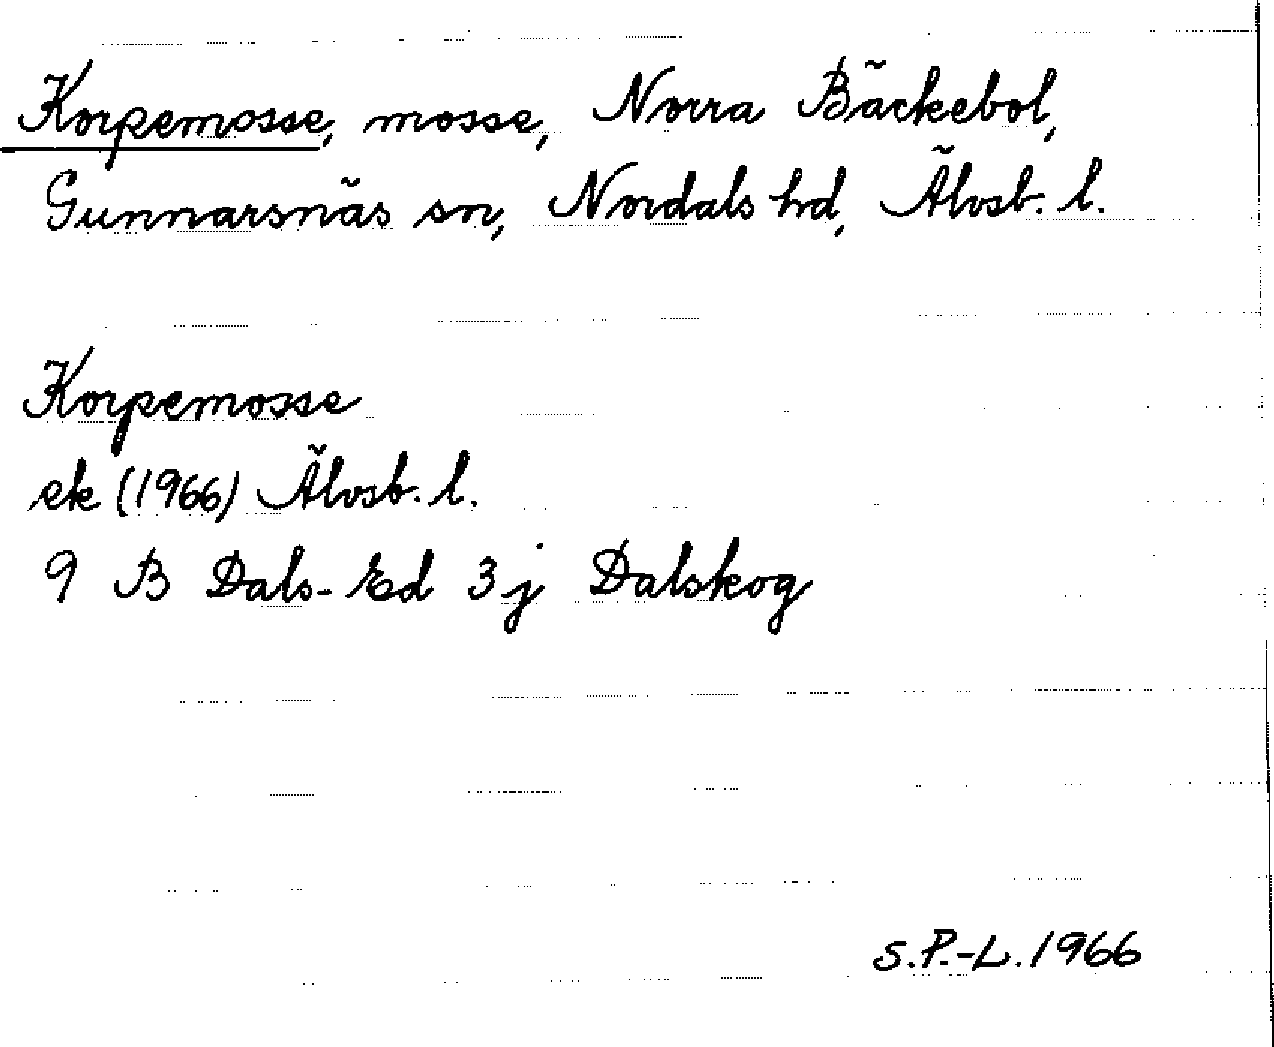 Korpemosse, mosse, Norra Bäckebol,
Gunnarsnäs sn, Nordals hd, Älvsb. l.
Korpemosse
ek (1966) Älvsb. l.
9 B Dals-Ed 3 j Dalskog
S.P.-L. 1966